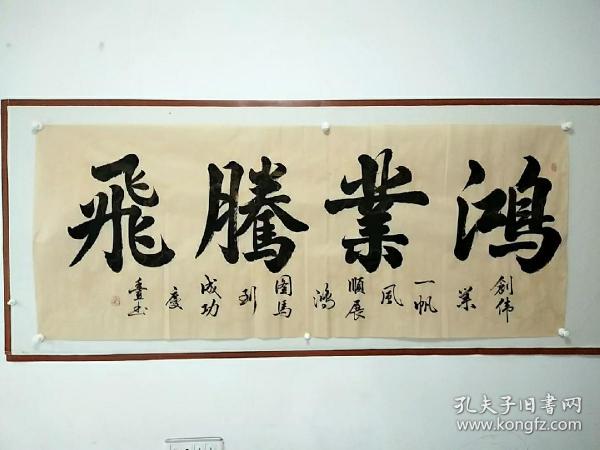 鴻業騰飛
創伟
業
一帆
風
順展
鴻
圖馬
到
成功
慶
書
孔夫子旧书网
www.kongfz.com